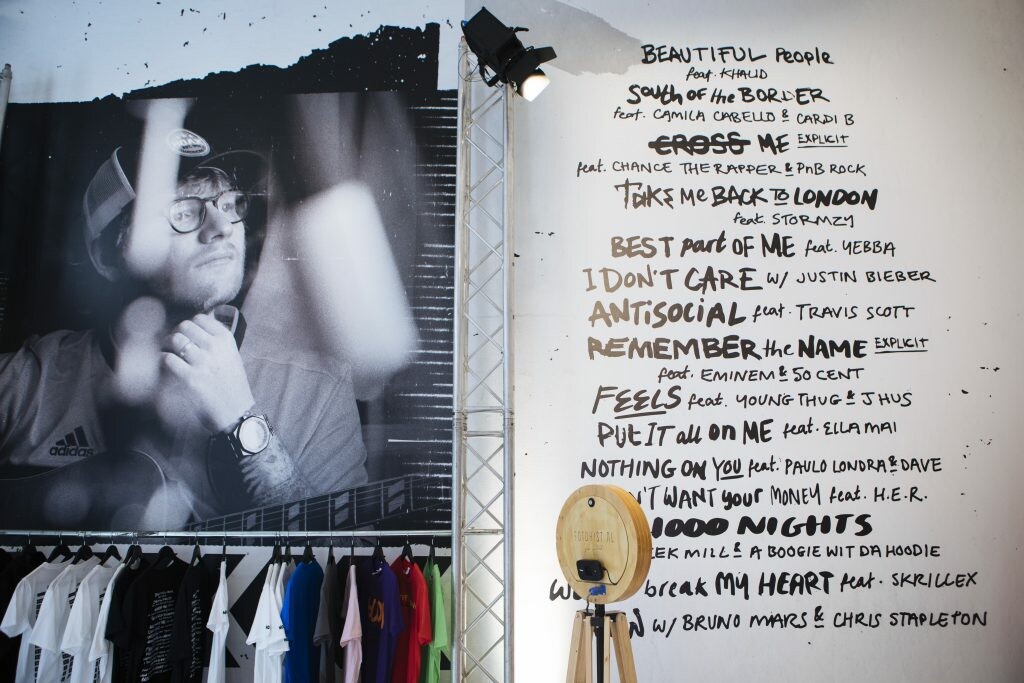 BEAUTIFUL People
feat. KHALID
South of the BORDER
feat. CAMILA CABELLO & CARDI B
CROSS ME EXPLICIT
feat. CHANCE THE RAPPER & PnB ROCK
TAKE Me BACK TO LONDON
feat. STORMZY
BEST part OF ME feat. YEBBA
I DON'T CARE W/ JUSTIN BIEBER
ANTiSOCIAL feat. TRAVIS SCOTT
REMEMBER the NAME EXPLICIT
feat. EMINEM & 50 CENT
FEELS feat. YOUNG THUG & J HUS
PUT IT all ON ME feat. ELLA MAI
NOTHING ON YOU feat. PAULO LONDRA & DAVE
N'T WANT your MONEY feat. H.E.R.
1000 NIGHTS
EEK MILL & A BOOGIE WIT DA HOODIE
break MY HEART feat. SKRILLEX
W/ BRUNO MARS & CHRIS STAPLETON
adidas